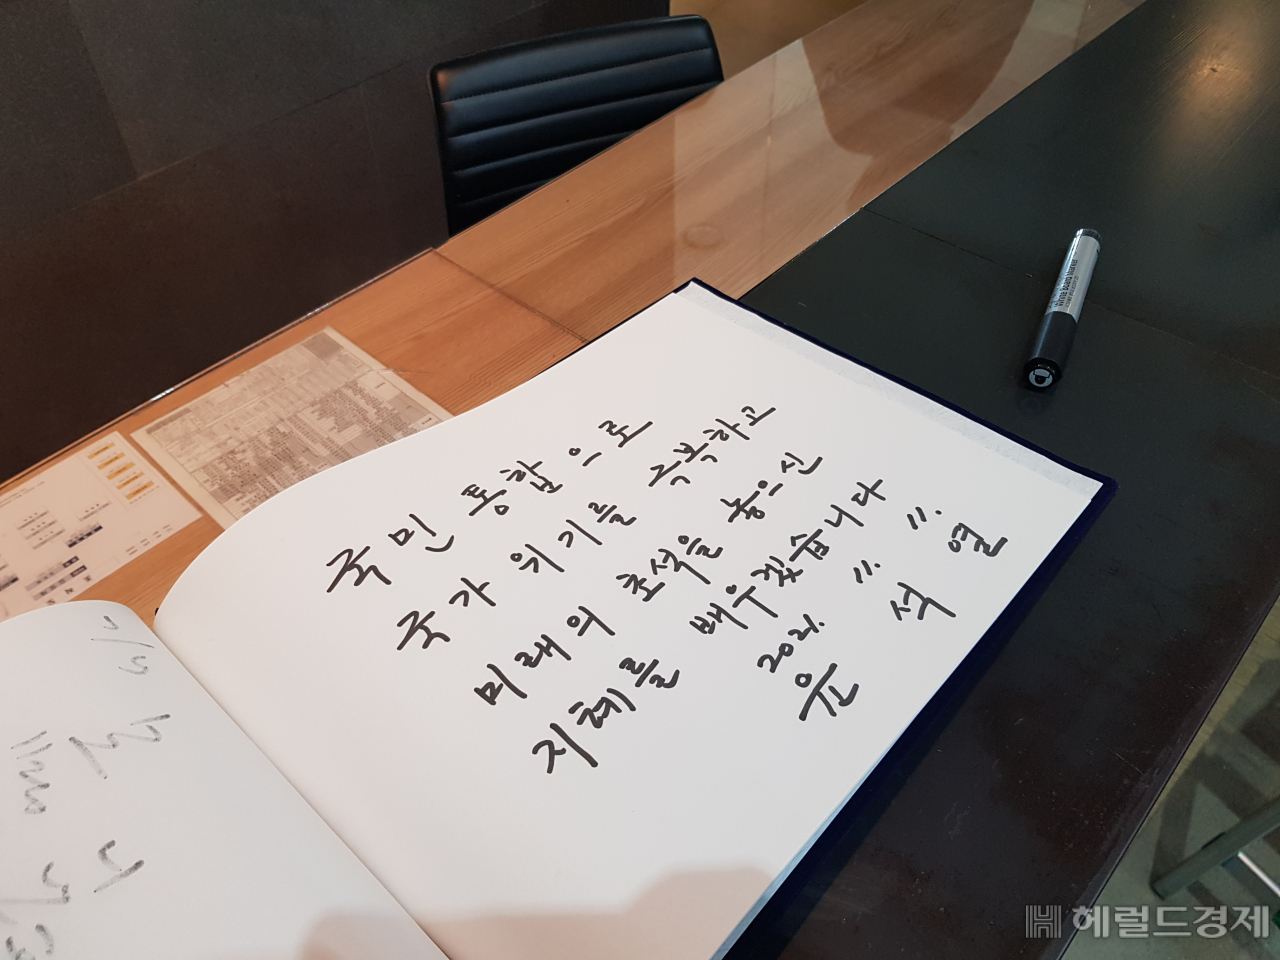 국민 통합으로
국가 위기를 극복하고
미래의 초석을 놓으신
지혜를 배우겠습니다
2021. 11. 11.
윤 석 열
White Board Marker
헤럴드경제